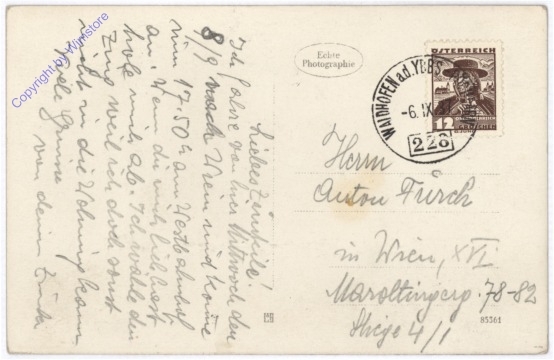 Liebes Zinserl!
Ich fahre von hier Mittwoch den
8/9 nach Wien und komme
um 17.50 h am Westbahnhof
an. Wenn du mich lieb hast
hole mich ab. Ich wähle den
Zug weil ich doch sonst
nicht in die Wohnung kann
Viele Grüsse
von deinem
Echte
Photographie
WAIDHOFEN a.d. YBBS
-6. IX.
228
ÖSTERREICH
12
GROSCHEN
Herrn
Anton Fürch
in Wien, XVI
Maroltingerg. 78-82
Stiege 4/1
85361
Copyright by Wimstore